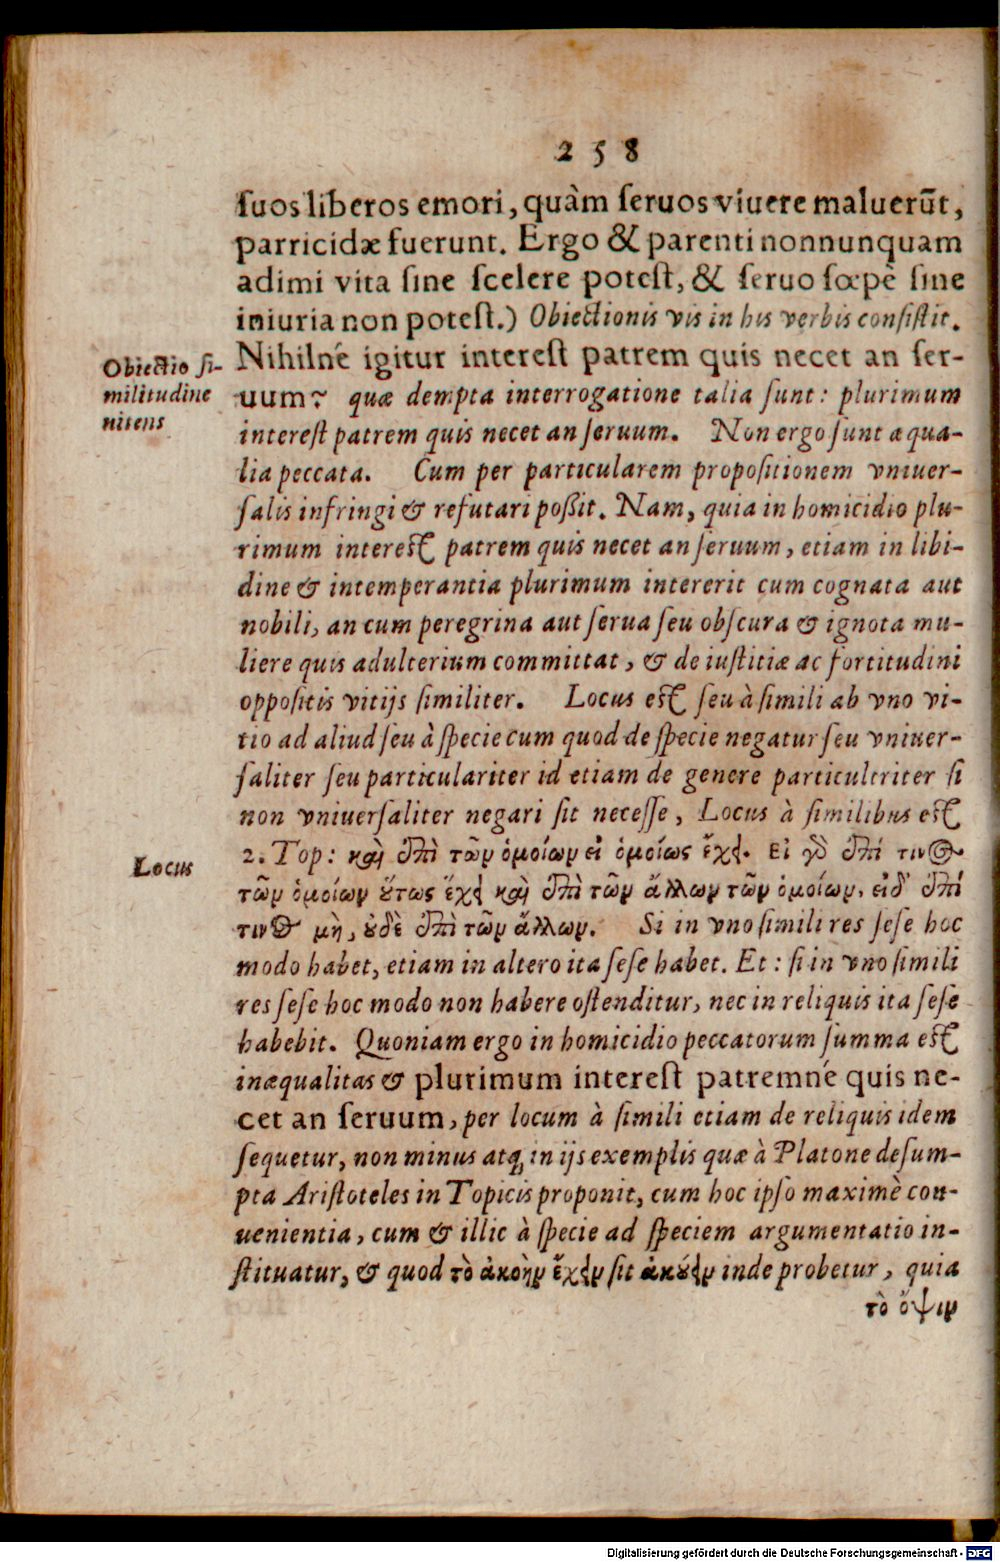 258
ſuos liberos emori, quàm ſeruos viuere maluerūt,
parricidæ fuerunt. Ergo & parenti nonnunquam
adimi vita ſine ſcelere poteſt, & ſeruo ſœpè ſine
iniuria non poteſt.) Obiectionis vis in his verbis conſiſtit.
Obiectio ſi-
militudine
nitens
Nihilné igitur intereſt patrem quis necet an ſer-
uum? quæ dempta interrogatione talia ſunt: plurimum
intereſt patrem quis necet an ſeruum. Non ergo ſunt æqua-
lia peccata. Cum per particularem propoſitionem vniuer-
ſalis infringi & refutari poßit. Nam, quia in homicidio plu-
rimum intereſt patrem quis necet an ſeruum, etiam in libi-
dine & intemperantia plurimum intererit cum cognata aut
nobili, an cum peregrina aut ſerua ſeu obſcura & ignota mu-
liere quis adulterium committat, & de iuſtitiæ ac fortitudini
oppoſitis vitijs ſimiliter. Locus eſt ſeu à ſimili ab vno vi-
tio ad aliud ſeu à ſpecie cum quod de ſpecie negatur ſeu vniuer-
ſaliter ſeu particulariter id etiam de genere particulcriter ſi
non vniuerſaliter negari ſit neceſſe, Locus à ſimilibus eſt
Locus
2. Top: καὶ ἐπὶ τῶν ὁμοίων εἰ ὁμοίως ἔχει. Εἰ γὸ ἐπί τινος
τῶν ὁμοίων οὕτως ἔχει καὶ ἐπὶ τῶν ἄλλων τῶν ὁμοίων, εἰ δ' ἐπί
τινος μὴ, οὐδὲ ἐπὶ τῶν ἄλλων. Si in vno ſimili res ſeſe hoc
modo habet, etiam in altero ita ſeſe habet. Et: ſi in vno ſimili
res ſeſe hoc modo non habere oſtenditur, nec in reliquis ita ſeſe
habebit. Quoniam ergo in homicidio peccatorum ſumma eſt
inæqualitas & plurimum intereſt patremné quis ne-
cet an ſeruum, per locum à ſimili etiam de reliquis idem
ſequetur, non minus atq; in ijs exemplis quæ à Platone deſum-
pta Ariſtoteles in Topicis proponit, cum hoc ipſo maximè con-
uenientia, cum & illic à ſpecie ad ſpeciem argumentatio in-
ſtituatur, & quod τὸ ἀκοὴν ἔχειν ſit ἀκούειν inde probetur, quia
τὸ ὄψιν
Digitalisierung gefördert durch die Deutsche Forschungsgemeinschaft - DFG